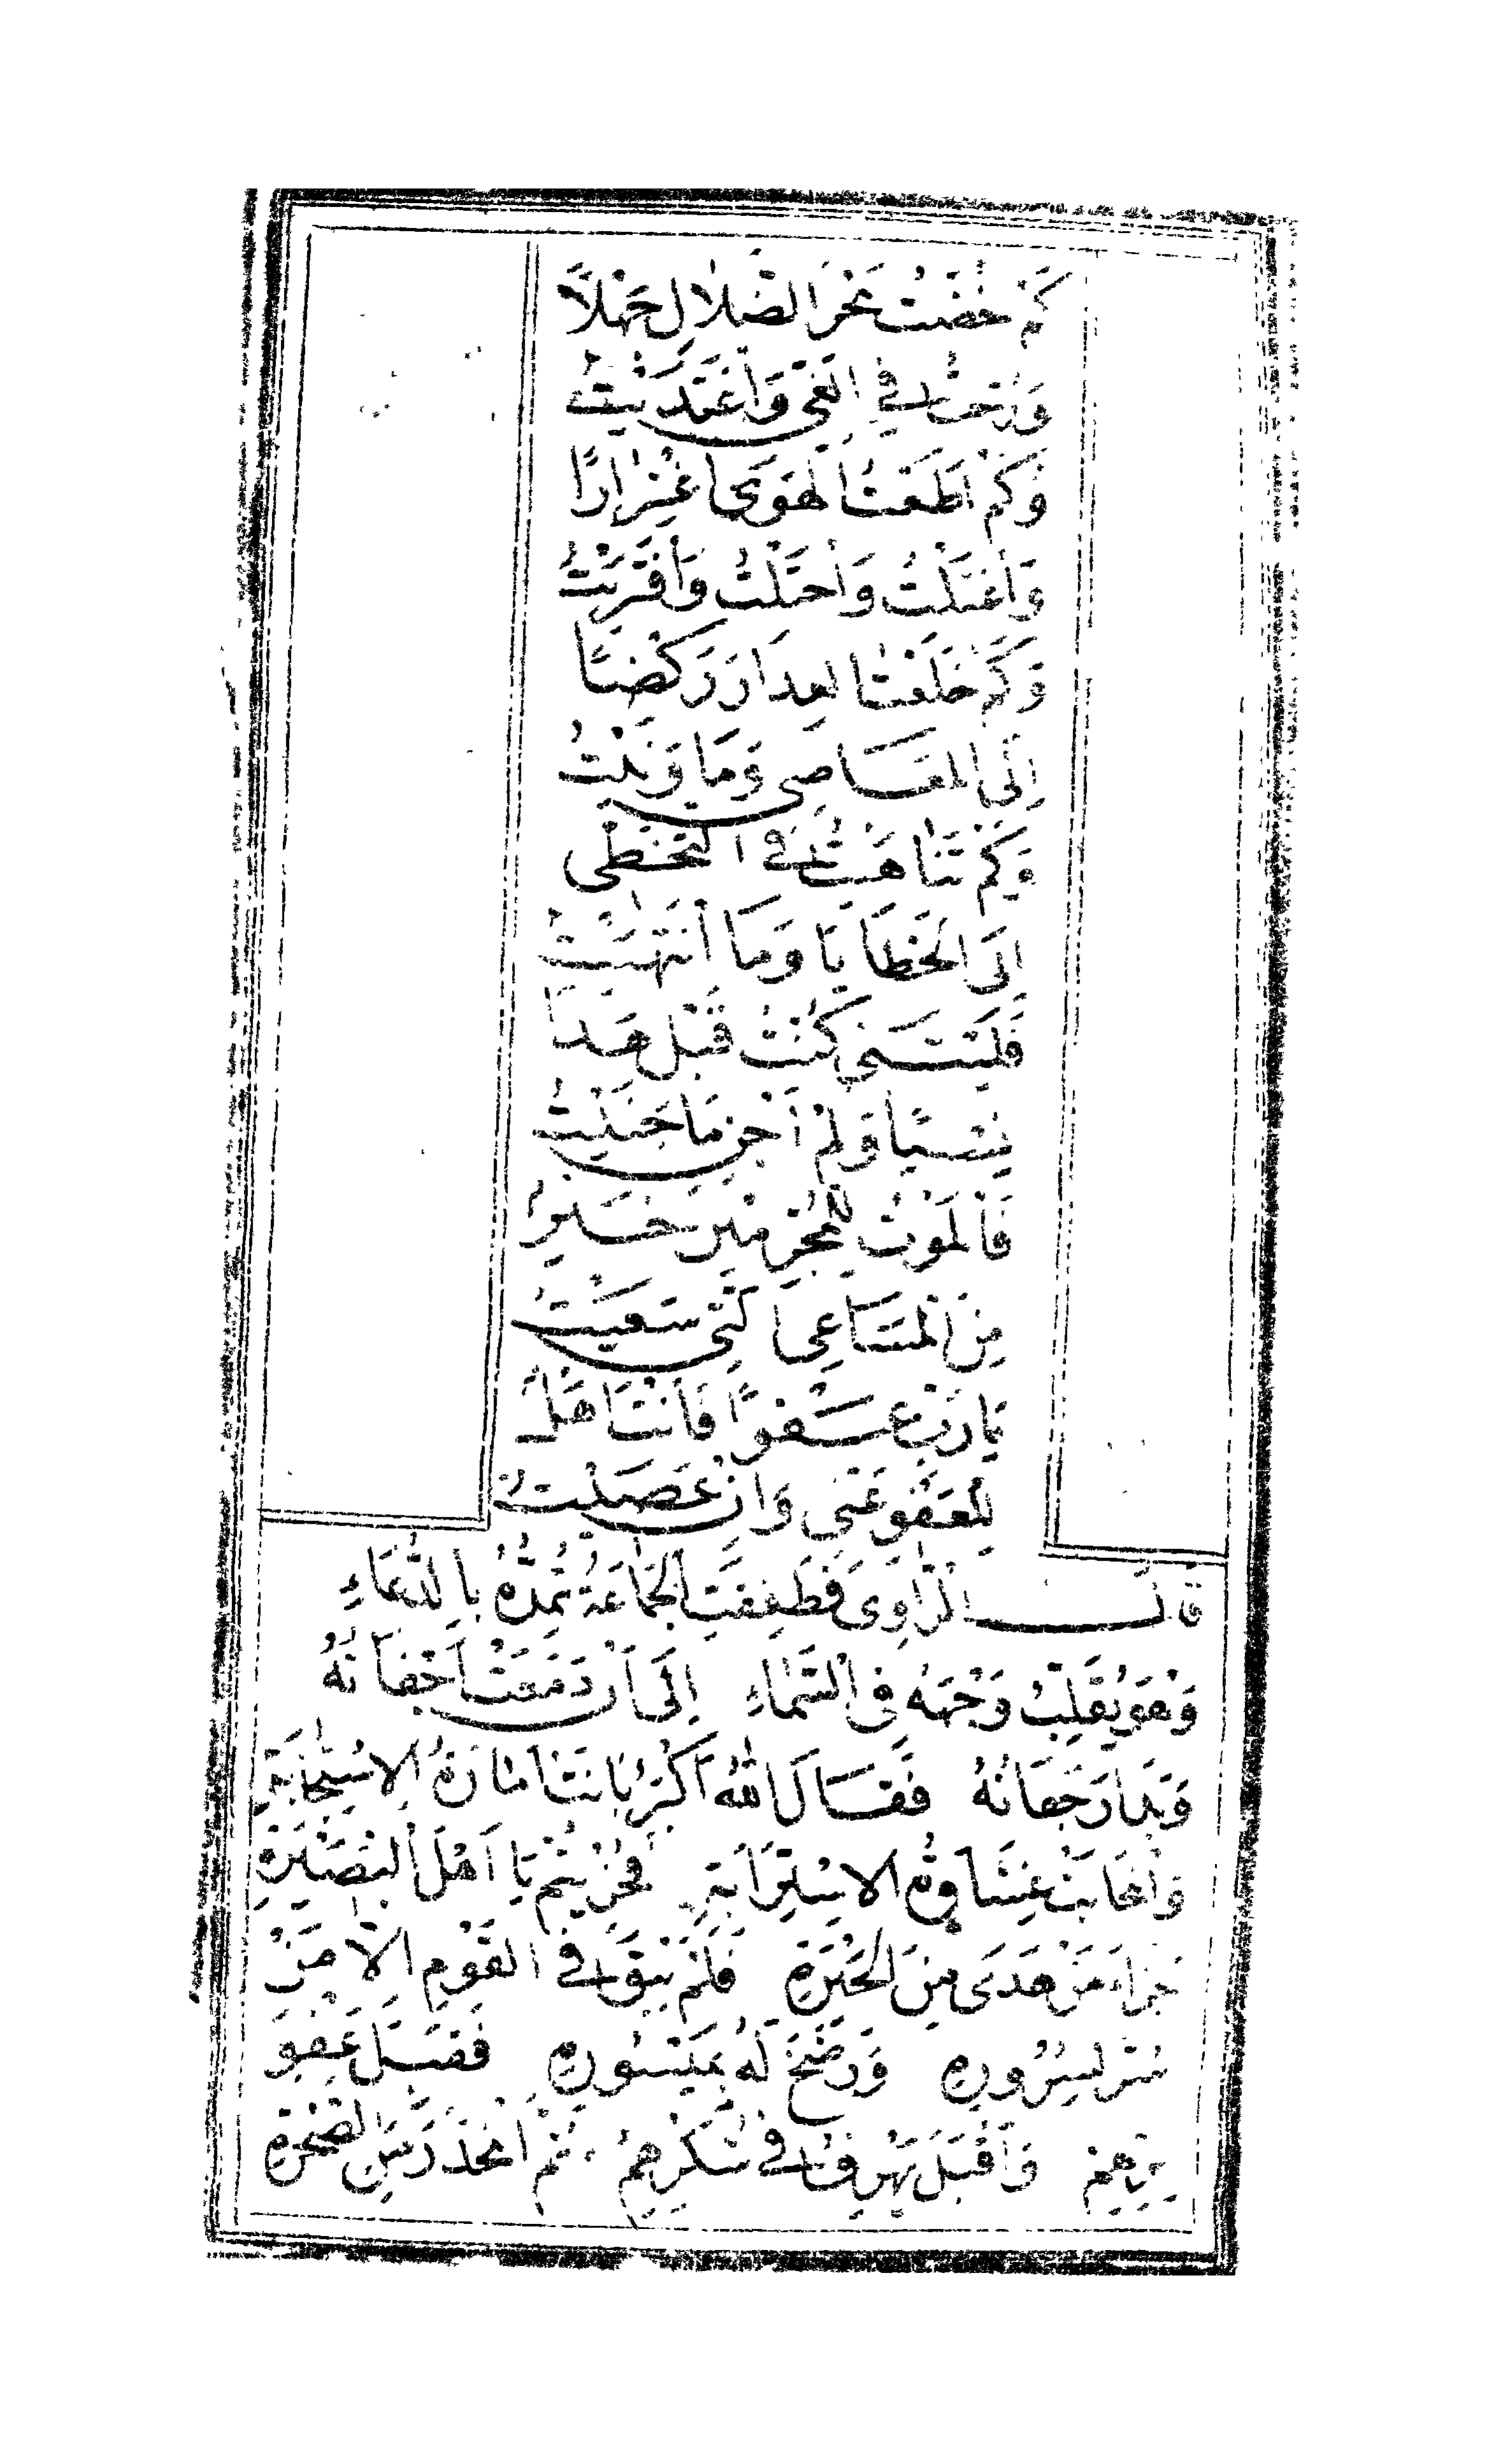 كَمْ خُضْتُ بَحْرَ الضَّلَالِ جَهْلًا
وَرُحْتُ فِي الْغَيِّ وَاغْتَدَيْتُ
وَكَمْ أَطَعْتُ الْهَوَى اغْتِرَارًا
وَاغْتَلْتُ وَاحْتَلْتُ وَافْتَرَيْتُ
وَكَمْ خَلَعْتُ الْعِذَارَ رَكْضًا
إِلَى الْمَعَاصِي وَمَا وَنَيْتُ
وَكَمْ تَنَاهَيْتُ فِي التَّخَطِّي
إِلَى الْخَطَايَا وَمَا انْتَهَيْتُ
فَلَيْتَنِي كُنْتُ قَبْلَ هَذَا
نِسْيًا وَلَمْ أَجْنِ مَا جَنَيْتُ
فَالْمَوْتُ لِلْمُجْرِمِينَ خَيْرٌ
مِنَ الْمَسَاعِي الَّتِي سَعَيْتُ
يَا رَبِّ عَفْوًا فَأَنْتَ أَهْلٌ
لِلْعَفْوِ عَنِّي وَإِنْ عَصَيْتُ
قَالَ الرَّاوِي فَطَفِقَتِ الْجَمَاعَةُ تُمِدُّهُ بِالدُّعَاءِ
وَهْوَ يُقَلِّبُ وَجْهَهُ فِي السَّمَاءِ إِلَى أَنْ دَمَعَتْ أَجْفَانُهُ
وَبَدَا رَجَفَانُهُ فَقَالَ اللهُ أَكْبَرُ بَانَتْ أَمَارَةُ الِاسْتِجَابَةِ
وَانْجَابَتْ غِشَاوَةُ الِاسْتِرَابَةِ فَجُزِيتُمْ يَا أَهْلَ الْبُصَيْرَةِ
جَزَاءَ مَنْ هَدَى مِنَ الْحَيْرَةِ فَلَمْ يَبْقَ فِي الْقَوْمِ إِلَّا مَنْ
سُرَّ لِسُرُورِهِ وَرَضَخَ لَهُ بِمَيْسُورِهِ فَقَبِلَ عَفْوَ
بِرِّهِمْ وَأَقْبَلَ يَهْرِفُ فِي شُكْرِهِمْ ثُمَّ انْحَدَرَ مِنَ الصَّخْرَةِ